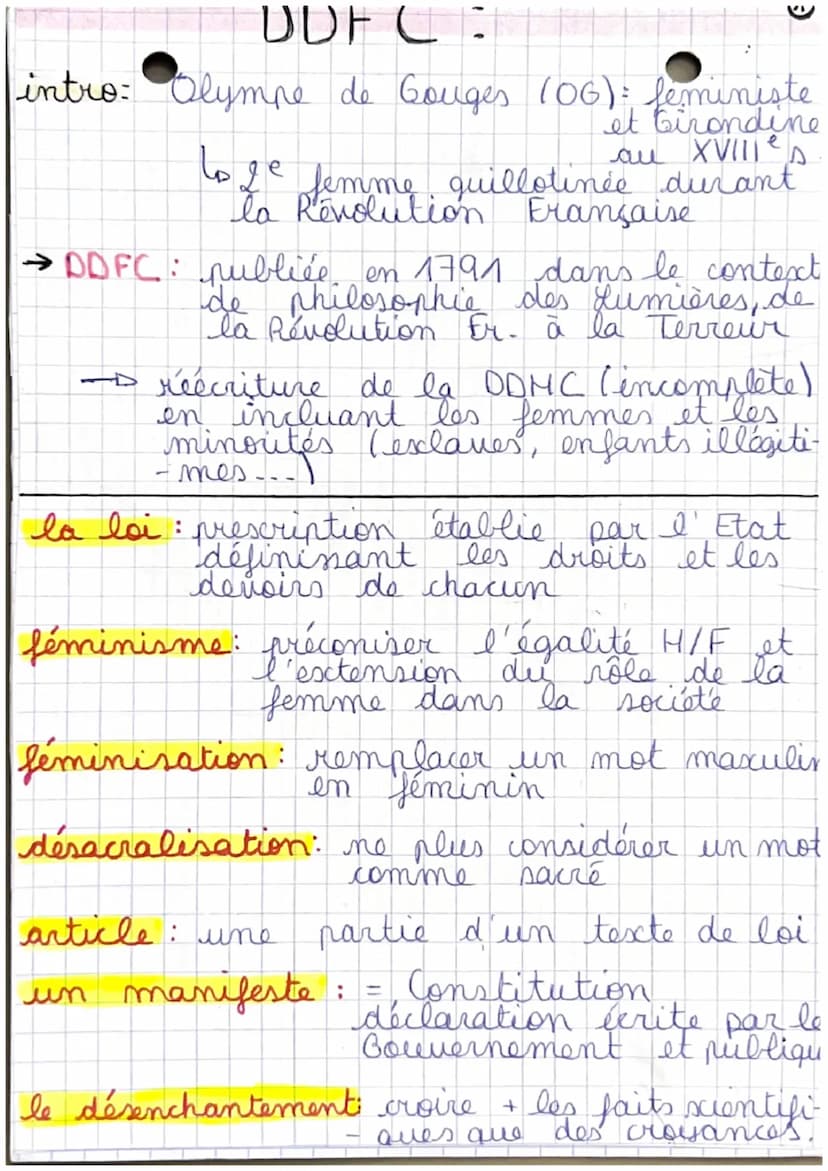 DDFC :
intro: Olympe de Gouges (OG): féministe
et Girondine
au XVIIIe s
↳ 2e femme guillotinée durant
la Révolution Française
→ DDFC : publiée en 1791 dans le context
de philosophie des Lumières, de
la Révolution Fr. à la Terreur
→ réécriture de la DDHC (incomplète)
en incluant les femmes et les
minorités (esclaves, enfants illégiti-
-mes...)
la loi : prescription établie par l'Etat
définissant les droits et les
devoirs de chacun
féminisme : préconiser l'égalité H/F et
l'extension du rôle de la
femme dans la société
féminisation : remplacer un mot masculin
en féminin
désacralisation : ne plus considérer un mot
comme sacré
article : une partie d'un texte de loi
un manifeste : = Constitution
déclaration écrite par le
Gouvernement et publiqu
le désenchantement : croire + les faits scientifi-
-ques que des croyances.